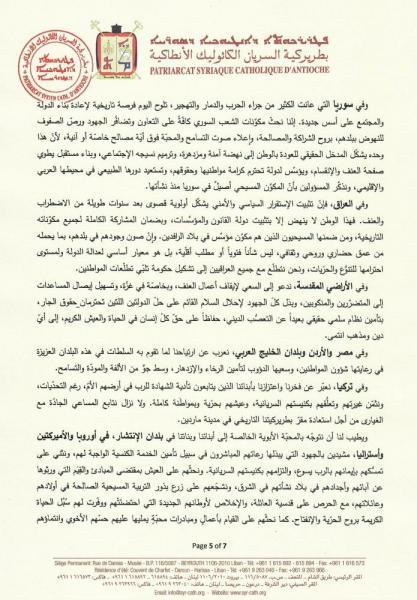 بطريركية السريان الكاثوليك الأنطاكية
PATRIARCAT SYRIAQUE CATHOLIQUE D'ANTIOCHE
وفي سوريا التي عانت الكثير من جراء الحرب والدمار والتهجير، تلوح اليوم فرصة تاريخية لإعادة بناء الدولة
والمجتمع على أسس جديدة. إننا نحثّ مكوّنات الشعب السوري كافّةً على التعاون وتضافُر الجهود ورصّ الصفوف
للنهوض ببلدهم، بروح الشراكة والمصالحة، وإعلاء صوت التسامح والمحبّة فوق أيّة مصالح خاصّة أو آنية، لأنّ هذا
وحده يشكّل المدخل الحقيقي للعودة بالوطن إلى نهضة آمنة ومزدهرة، وترميم نسيجه الإجتماعي، وبناء مستقبل يطوي
صفحة العنف والإنقسام، ويؤسّس لدولة تحترم كرامة مواطنيها وحقوقهم، وتستعيد دورها الطبيعي في محيطها العربي
والإقليمي. ونذكّر المسؤولين بأنّ المكوّن المسيحي أصيلٌ في سوريا منذ نشأتها.
وفي العراق، فإنّ تثبيت الإستقرار السياسي والأمني يشكّل أولوية قصوى بعد سنوات طويلة من الاضطراب
والعنف. فهذا الوطن لا ينهض إلا بتثبيت دولة القانون والمؤسّسات، وبضمان المشاركة الكاملة لجميع مكوّناته
التاريخية، ومن ضمنها المسيحيون الذين هم مكوّن مؤسّس في بلاد الرافدين. وإنّ صون وجودهم في بلدهم، بما يحمله
من عمق حضاري وروحي وثقافي، ليس شأناً فئوياً أو مطلب أقلّية، بل هو معيار أساسي لعدالة الدولة ولمستوى
احترامها للتنوّع والحرّيات، ونحن نتطلّع مع جميع العراقيين إلى تشكيل حكومة تلبّي تطلّعات المواطنين.
وفي الأراضي المقدسة، ندعو إلى السعي لإيقاف أعمال العنف، وبخاصّة في غزّة، وتسهيل إيصال المساعدات
إلى المتضرّرين والمنكوبين، وبذل كلّ الجهود لإحلال السلام القائم على حلّ الدولتين اللتين تحترمان حقوق الجار،
بتأمين نظام سلمي حقيقي بعيداً عن التعصّب الديني، حفاظاً على حقّ كلّ إنسان في الحياة والعيش الكريم، إلى أيّ
دين ومذهب انتمى.
وفي مصر والأردن وبلدان الخليج العربي، نعرب عن ارتياحنا لما تقوم به السلطات في هذه البلدان العزيزة
في رعايتها شؤون المواطنين، وسعيها الدؤوب لتأمين الرخاء والإزدهار، وسط جوّ من الألفة والمودّة والتسامح.
وفي تركيا، نعبّر عن فخرنا واعتزازنا بأبنائنا الذين يتابعون تأدية الشهادة للرب في أرضهم الأمّ، رغم التحدّيات،
ونثمّن غيرتهم وتعلّقهم بكنيستهم السريانية، وعيشهم بحرّية وبمواطنَة كاملة. ولا نزال نتابع المساعي الجادّة مع
الغيارى من أجل استعادة مقرّ بطريركيتنا التاريخي في مدينة ماردين.
ويطيب لنا أن نتوجّه بالمحبّة الأبوية الخالصة إلى أبنائنا وبناتنا في بلدان الإنتشار، في أوروبا والأميركتين
وأستراليا، مشيدين بالجهود التي يبذلها رعاتهم المباشرون في سبيل تأمين الخدمة الكنسية الواجبة لهم، ونثني على
تمسّكهم بإيمانهم بالرب يسوع، والتزامهم بكنيستهم السريانية. ونحثّهم على العيش بمقتضى المبادئ والقِيَم التي ورثوها
عن آبائهم وأجدادهم في بلاد نشأتهم في الشرق، ونشجّعهم على زرع بذور التربية المسيحية الصالحة في أولادهم
وعائلاتهم، مع الحرص على قدسية العائلة، والإخلاص لأوطانهم الجديدة التي احتضنَتْهم ووفّرت لهم سُبُل الحياة
الكريمة بروح الحرّية والإنفتاح. كما نحثّهم على القيام بأعمال ومبادرات محبّةٍ يمليها عليهم حسّهم الأخوي وانتماؤهم
Page 5 of 7
Siège Permanent: Rue de Damas - Musée - B.P. 116/5087 - BEYROUTH 1106-2010 Liban
Résidence d'été: Couvent de Charfet - Daroun - Harissa - Liban
E-mail: - Website: www.syr-cath.org